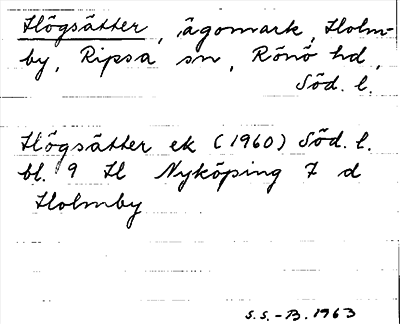 Högsätter, ägomark, Holm-
by, Ripsa sn, Rönö hd,
Söd. l.
Högsätter ek (1960) Söd. l.
bl. 9 Il Nyköping 7 d
Holmby
S.S.-B. 1963